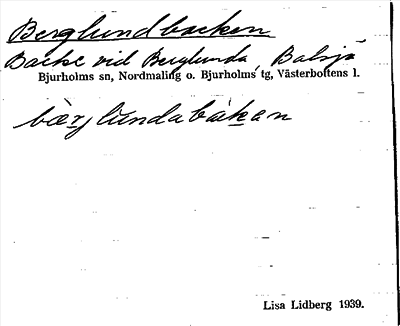 Berglundbacken
Backe vid Berglunda, Balsjö
Bjurholms sn, Nordmaling o. Bjurholms tg, Västerbottens l.
bær̨j lùndabàkan
Lisa Lidberg 1939.